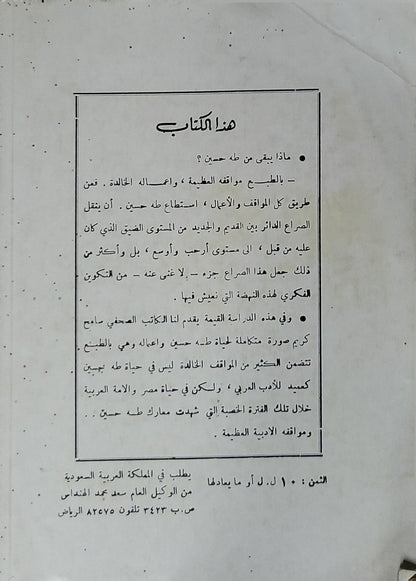 هذا الكتاب
• ماذا يبقى من طه حسين ؟
– بالطبع مواقفه العظيمة ، واعماله الخالدة . فعن
طريق كل المواقف والأعمال ، استطاع طه حسين . أن ينقل
الصراع الدائر بين القديم والجديد من المستوى الضيق الذي كان
عليه من قبل ، الى مستوى أرحب وأوسع ، بل وأكثر من
ذلك جعل هذا الصراع جزء – لا غنى عنه – من التكوين
الفكري لهذه النهضة التي نعيش فيها .
• وفي هذه الدراسة القيمة يقدم لنا الكاتب الصحفي سامح
كريم صورة متكاملة لحياة طه حسين واعماله وهي بالطبع
تتضمن الكثير من المواقف الخالدة ليس في حياة طه حسين
كعميد للأدب العربي ، ولكن في حياة مصر والامة العربية
خلال تلك الفترة الخصبة التي شهدت معارك طه حسين . .
ومواقفه الادبية العظيمة .
الثمن : ١٠ ل.ل أو ما يعادلها
يطلب في المملكة العربية السعودية
من الوكيل العام سعد محمد الهنداس
ص.ب ٣٤٢٣ تلفون ٨٢٥٧٥ الرياض